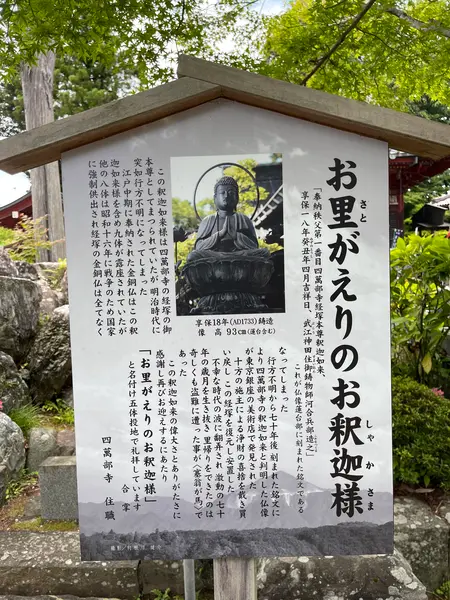 お里がえりのお釈迦様
さと
しゃか
さま
「奉納秩父第一番目四萬部寺経塚本尊釈迦如来、
享保一八年癸丑年四月吉祥日、武江神田住御鋳物師河合兵部造之」
これが仏像蓮台部に刻まれた銘文である
この釈迦如来像は四萬部寺の経塚の御
本尊としてまつられていたが明治時代に
突如行方不明になってしまった
江戸中期に奉納された金銅仏はこの釈
迦如来様を含め九体が露座されていたが
他の八体は昭和十六年に戦争のため国家
に強制供出され経塚の金銅仏は全てなく
なってしまった
享保18年(AD1733)鋳造
像 高 93cm(蓮台も含む)
行方不明から七十年後 刻まれた銘文に
より四萬部寺の釈迦如来と判明した仏像
が東京銀座の美術店で発見された
十方の施主による浄財の喜捨を戴き買
い戻しこの経塚を復元し安置した
不幸な時代の波に翻弄され 激動の七十
年の歳月を生き抜き 里帰りをできたのは
奇しくも盗難に遭った事が(塞翁が馬)で
あった
この釈迦如来の偉大さとありがたさに
感謝し再びお迎えするにあたり
「お里がえりのお釈迦様」
と名付け五体投地で礼拝しています
合掌
四萬部寺 住職